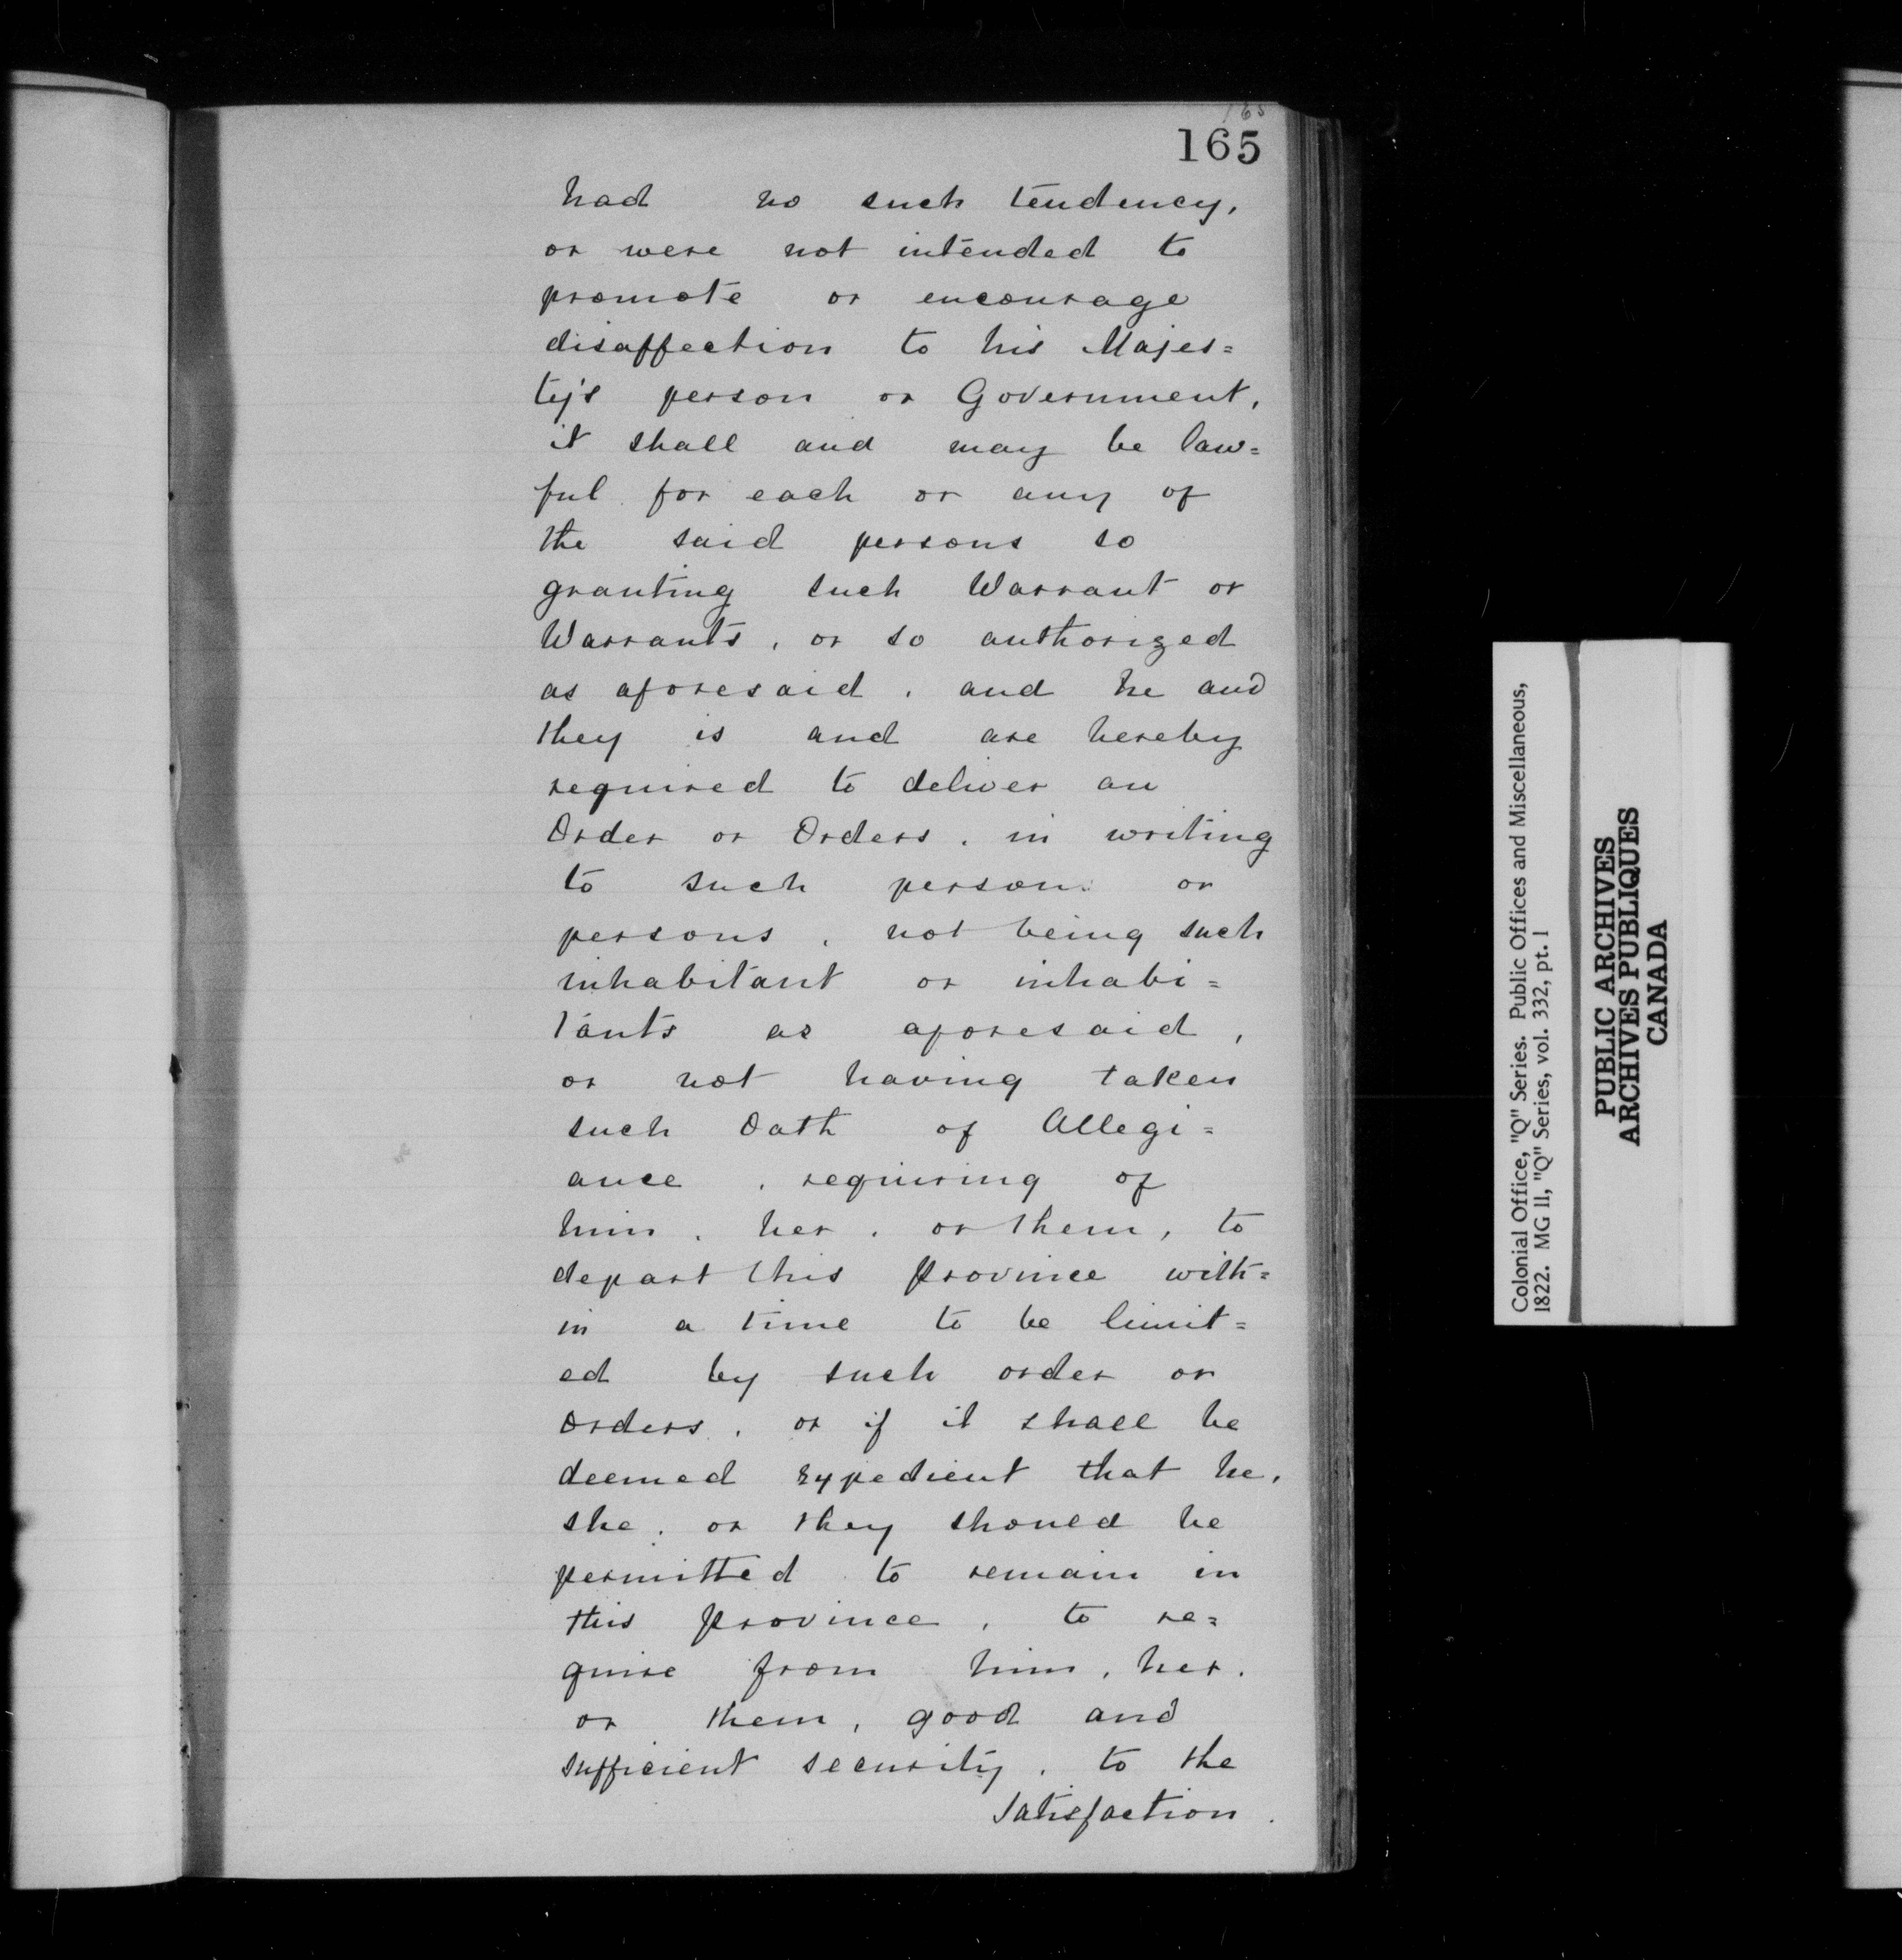 165
165
had no such tendency,
or were not intended to
promote or encourage
disaffection to his Majes=
ty's person or Government,
it shall and may be law=
ful for each or any of
the said persons so
granting such Warrant or
Warrants, or so authorized
as aforesaid, and he and
they is and are hereby
required to deliver an
Order or Orders, in writing
to such person or
persons, not being such
inhabitant or inhabi=
tants as aforesaid,
or not having taken
such Oath of Allegi=
ance, requiring of
him, her, or them, to
depart this Province with=
in a time to be limit=
ed by such order or
orders, or if it shall be
deemed expedient that he,
she, or they should be
permitted to remain in
this Province, to re=
quire from him, her,
or them, good and
sufficient security, to the
Satisfaction.
Colonial Office, "Q" Series. Public Offices and Miscellaneous,
1822. MG 11, "Q" Series, vol. 332, pt. 1
PUBLIC ARCHIVES
ARCHIVES PUBLIQUES
CANADA